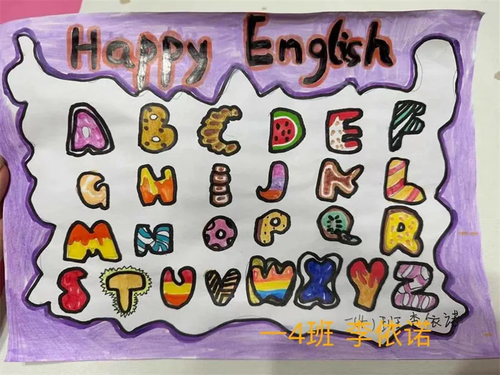 Happy English
A B C D E F
G H I J K L
M N O P Q R
S T U V W X Y Z
一(4)班 李依诺
一4班 李依诺